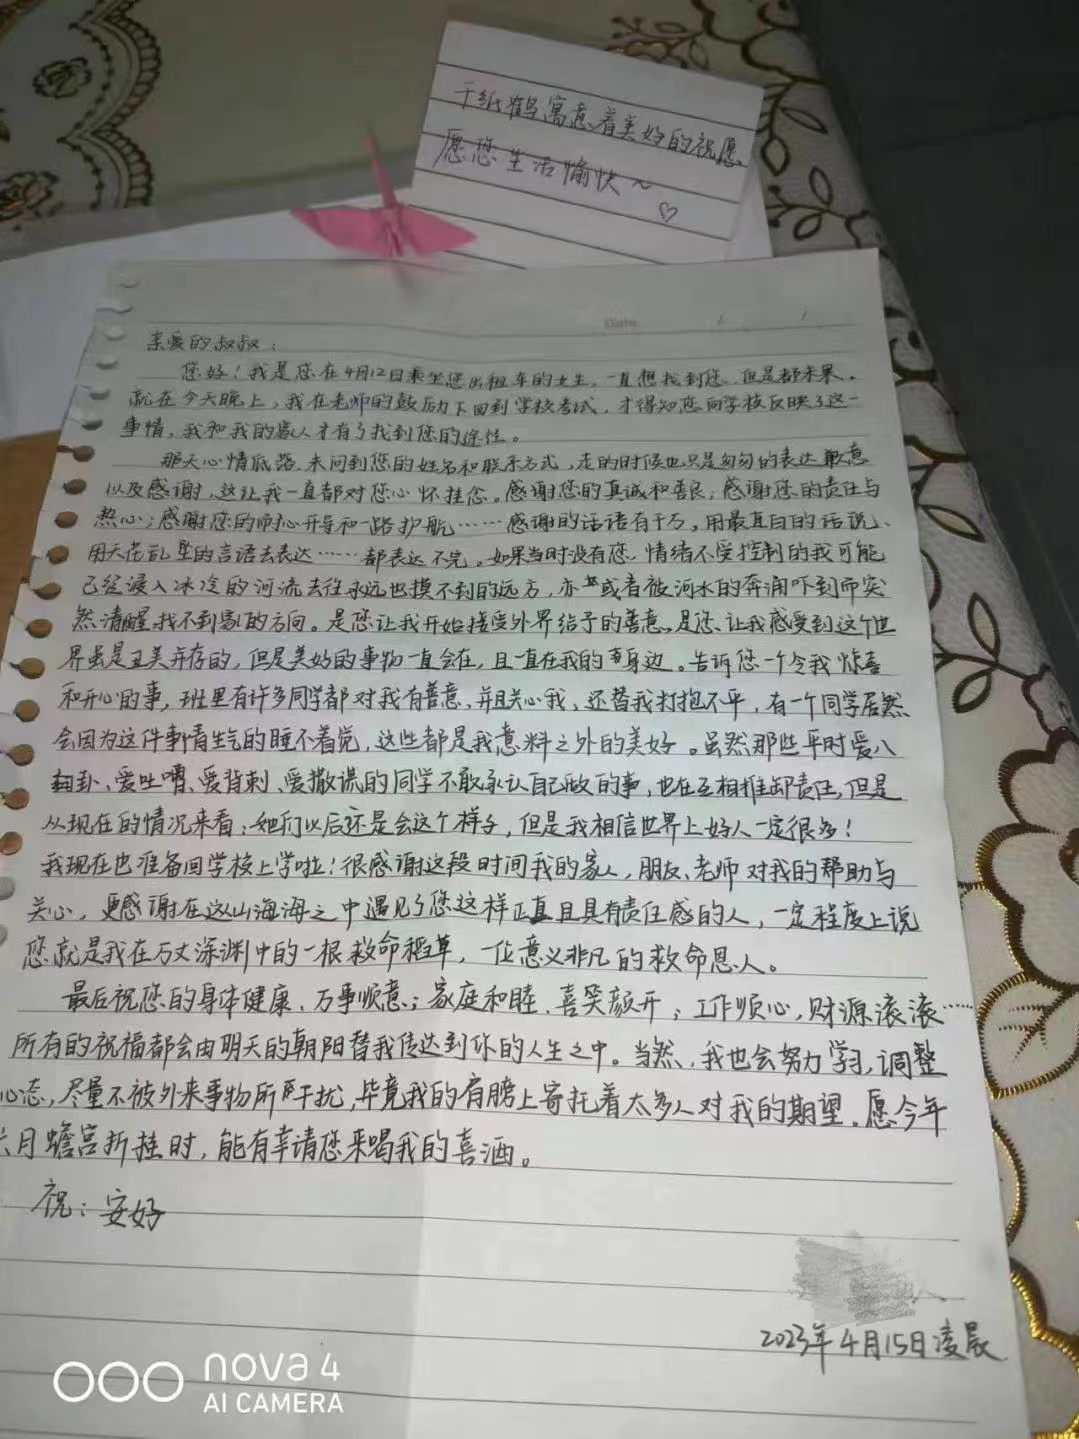 千纸鹤寓意着美好的祝愿
愿您生活愉快~♡
Date / /
亲爱的叔叔：
您好！我是您在4月12日乘坐您出租车的女生，一直想找到您，但是都未果。
就在今天晚上，我在老师的鼓励下回到学校考试，才得知您向学校反映了这一
事情，我和我的家人才有了找到您的途径。
那天心情低落，未问到您的姓名和联系方式，走的时候也只是匆匆的表达歉意
以及感谢，这让我一直都对您心怀挂念。感谢您的真诚和善良；感谢您的责任与
热心；感谢您的耐心开导和一路护航……感谢的话语有千万，用最直白的话说、
用天花乱坠的言语去表达……都表达不完。如果当时没有您，情绪不受控制的我可能
已经浸入冰冷的河流去往永远也摸不到的远方，亦或者被河水的奔涌吓到而突
然清醒找不到家的方向。是您让我开始接受外界给予的善意，是您让我感受到这个世
界虽是丑美并存的，但是美好的事物一直会在，且一直在我的身边。告诉您一个令我惊喜
和开心的事，班里有许多同学都对我有善意，并且关心我，还替我打抱不平，有一个同学居然
会因为这件事情生气的睡不着觉，这些都是我意料之外的美好。虽然那些平时爱八
卦、爱吐嘈、爱背刺、爱撒谎的同学不敢承认自己做的事，也在互相推卸责任，但是
从现在的情况来看；她们以后还是会这个样子，但是我相信世界上好人一定很多！
我现在也准备回学校上学啦！很感谢这段时间我的家人，朋友、老师对我的帮助与
关心，更感谢在这山海海之中遇见了您这样正直且具有责任感的人，一定程度上说
您就是我在万丈深渊中的一根救命稻草，一位意义非凡的救命恩人。
最后祝您的身体健康、万事顺意；家庭和睦、喜笑颜开；工作顺心，财源滚滚……
所有的祝福都会由明天的朝阳替我传达到你的人生之中。当然，我也会努力学习，调整
心态，尽量不被外来事物所干扰，毕竟我的肩膀上寄托着太多人对我的期望。愿今年
六月蟾宫折挂时，能有幸请您来喝我的喜酒。
祝：安好
2023年4月15日凌晨
nova 4
AI CAMERA